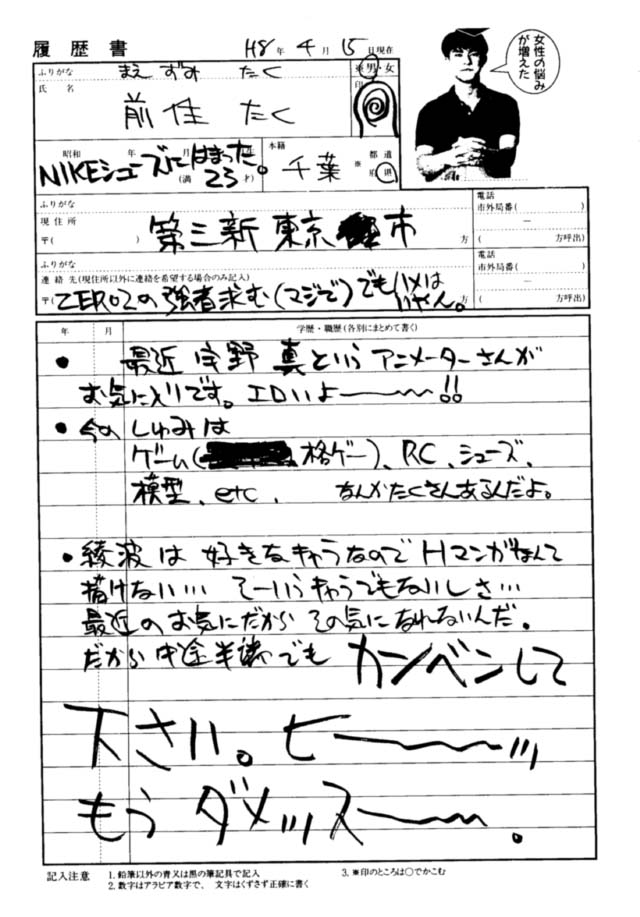 履歴書
H8年4月15日現在
女性の悩み
が増えた
ふりがな まえずみ たく
※男・女
氏名
前住 たく
印
昭和 年 月
NIKEシューズにはまった。
(満 23 才)
本籍
千葉
※ 都道
府県
ふりがな
現住所
〒( )
第三新東京市
方
電話
市外局番( )
ー
( 方呼出)
ふりがな
連絡先(現住所以外に連絡を希望する場合のみ記入)
〒( ZERO2の強者求む(マジで)でもハメはいやん。
電話
市外局番( )
ー
( 方呼出)
年 月 学歴・職歴(各別にまとめて書く)
・最近宇野真というアニメーターさんが
お気に入りです。エロいよ〜!!
・今のしゅみは
ゲーム(格ゲー)、RC、シューズ、
模型、etc. なんかたくさんあるんだよ。
・綾波は好きなきゃらなのでHマンガなんて
描けない… そーいうきゃらでもないしさ…
最近のお気にだからその気になれないんだ。
だから中途半端でも カンベンして
下さい。ヒー〜ッ
もうダメッス〜。
記入注意
1.鉛筆以外の青又は黒の筆記具で記入
2.数字はアラビア数字で、文字はくずさず正確に書く
3.※印のところは○でかこむ